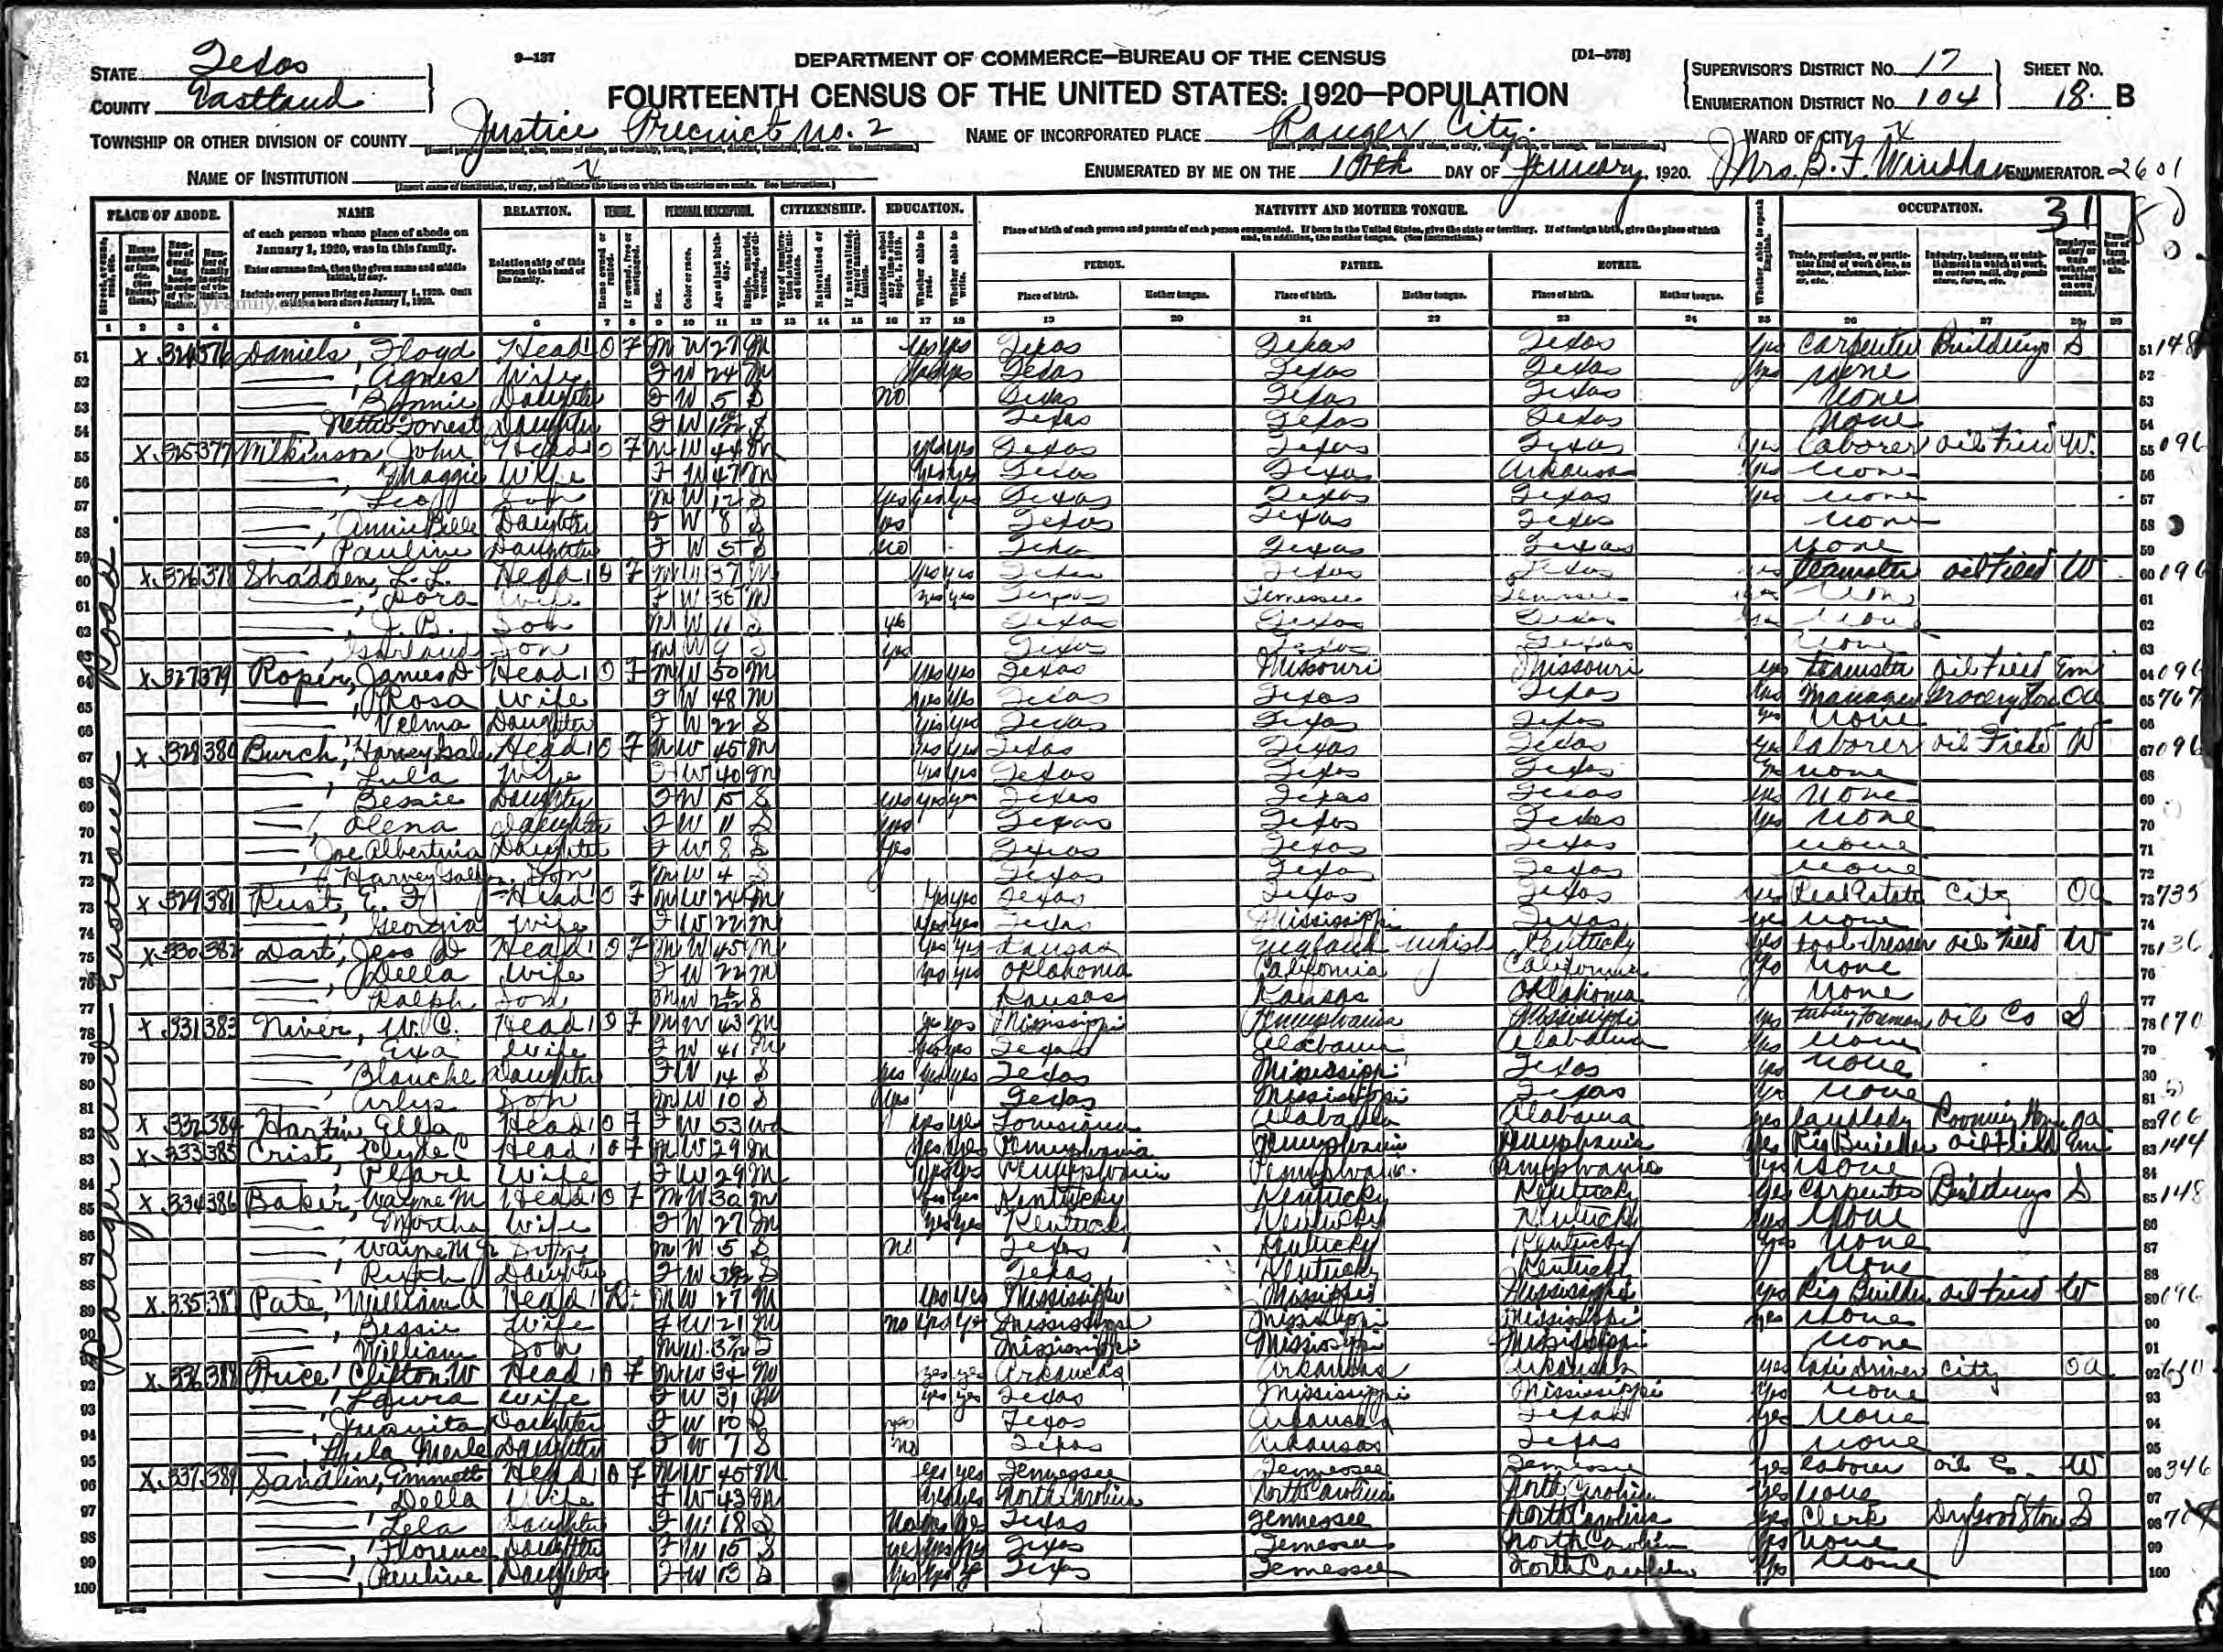 9-137
DEPARTMENT OF COMMERCE—BUREAU OF THE CENSUS
[D1-578]
STATE Texas
COUNTY Eastland
FOURTEENTH CENSUS OF THE UNITED STATES: 1920—POPULATION
SUPERVISOR'S DISTRICT No. 17
ENUMERATION DISTRICT No. 104
SHEET No. 18 B
TOWNSHIP OR OTHER DIVISION OF COUNTY Justice Precinct No. 2
NAME OF INCORPORATED PLACE Ranger City
WARD OF CITY X
NAME OF INSTITUTION X
ENUMERATED BY ME ON THE DAY OF January, 1920. Mrs. B. F. Windham ENUMERATOR. 2601
PLACE OF ABODE. NAME RELATION. TENURE. PERSONAL DESCRIPTION. CITIZENSHIP. EDUCATION. NATIVITY AND MOTHER TONGUE. OCCUPATION. 31
of each person whose place of abode on January 1, 1920, was in this family.
Enter surname first, then the given name and middle initial, if any.
Include every person living on January 1, 1920. Omit children born since January 1, 1920.
Relationship of this person to the head of the family.
Place of birth of each person and parents of each person enumerated. If born in the United States, give the state or territory. If of foreign birth, give the place of birth and, in addition, the mother tongue. (See Instructions.)
PERSON. FATHER. MOTHER.
Place of birth. Mother tongue. Place of birth. Mother tongue. Place of birth. Mother tongue.
1 2 3 4 5 6 7 8 9 10 11 12 13 14 15 16 17 18 19 20 21 22 23 24 25 26 27 28 29
Ranger and Eastland Road.
51 X 324 376 Daniels, Floyd Head O F M W 27 M yes yes Texas Texas Texas yes Carpenter Buildings S 51 148
52 —, Agnes Wife F W 24 M yes yes Texas Texas Texas yes none 52
53 —, Bonnie Daughter F W 5 S no Texas Texas Texas none 53
54 Nettie Forrest Daughter F W S Texas Texas Texas none 54
55 X 325 377 Wilkinson John Head O F M W 44 M yes yes Texas Texas Texas yes laborer oil Field W. 55 096
56 —, Maggie Wife F W 47 M yes yes Texas Texas Arkansas yes none 56
57 —, Leo Son M W 12 S yes yes yes Texas Texas Texas yes none 57
58 —, Annie Belle Daughter F W 8 S yes Texas Texas Texas none 58
59 —, Pauline Daughter F W 5 S no Texas Texas Texas none 59
60 X 326 378 Shadden, L. L. Head O F M W 37 M yes yes Texas Texas Texas yes teamster oil Field W 60 096
61 —, Dora Wife F W M yes yes Texas Tennessee Tennessee yes none 61
62 —, J. B. Son M W 11 S yes Texas Texas Texas yes none 62
63 —, Garland Son M W 9 S yes Texas Texas Texas none 63
64 X 327 379 Roper, James D Head O F M W 50 M yes yes Texas Missouri Missouri yes teamster oil Field Em 64 096
65 —, Rosa Wife F W 48 M yes yes Texas Texas Texas yes Manager Grocery Store OA 65 767
66 —, Velma Daughter F W 22 S yes yes Texas Texas Texas yes none 66
67 X 328 380 Burch, Harvey Gale Head O F M W 45 M yes yes Texas Texas Texas yes laborer oil Field W 67 096
68 —, Lula Wife F W 40 M yes yes Texas Texas Texas yes none 68
69 —, Bessie Daughter F W 15 S yes yes yes Texas Texas Texas yes none 69
70 —, Olena Daughter F W 11 S yes Texas Texas Texas yes none 70
71 —, Joe Albertina Daughter F W 8 S yes Texas Texas Texas none 71
72 —, Harvey Gale Jr. Son M W 4 S Texas Texas Texas none 72
73 X 329 381 Rust, E. F. Head O F M W 24 M yes yes Texas Texas Texas yes Real Estate City OA 73 735
74 —, Georgia Wife F W 22 M yes yes Texas Mississippi Texas yes none 74
75 X 330 382 Dart, Jess D Head O F M W 45 M yes yes Kansas England English Kentucky yes tool dresser oil Field W 75 136
76 —, Della Wife F W 22 M yes yes Oklahoma California California yes none 76
77 —, Ralph Son M W S Kansas Kansas Oklahoma none 77
78 X 331 383 Niver, W. C. Head O F M W 43 M yes yes Mississippi Pennsylvania Mississippi yes foreman oil Co S 78 070
79 —, Wife F W 41 M yes yes Texas Alabama Alabama yes none 79
80 —, Blanche Daughter F W 14 S yes yes yes Texas Mississippi Texas yes none 80
81 —, Arlys Son M W 10 S yes Texas Mississippi Texas yes none 81
82 X 332 384 Hartin, Ella Head O F F W 53 Wd yes yes Louisiana Alabama Alabama yes landlady Rooming House OA 82 906
83 X 333 385 Crist, Clyde C Head O F M W 29 M yes yes Pennsylvania Pennsylvania Pennsylvania yes Rig Builder oil Field Em 83 144
84 —, Pearl Wife F W 29 M yes yes Pennsylvania Pennsylvania Pennsylvania yes none 84
85 X 334 386 Baker, Wayne M Head O F M W 30 M yes yes Kentucky Kentucky Kentucky yes Carpenter Buildings S 85 148
86 —, Martha Wife F W 27 M yes yes Kentucky Kentucky Kentucky yes none 86
87 —, Wayne M Jr Son M W 5 S no Texas Kentucky Kentucky yes none 87
88 —, Ruth Daughter F W S Texas Kentucky Kentucky none 88
89 X 335 387 Pate, William A Head R M W 27 M yes yes Mississippi Mississippi Mississippi yes Rig Builder oil Field W 89 096
90 —, Bessie Wife F W 21 M no yes yes Mississippi Mississippi Mississippi yes none 90
91 —, William Son M W S Mississippi Mississippi Mississippi none 91
92 X 336 388 Price, Clifton W Head O F M W 34 M yes yes Arkansas Arkansas Arkansas yes taxi driver City OA 92 630
93 —, Laura Wife F W 31 M yes yes Texas Mississippi Mississippi yes none 93
94 —, Juanita Daughter F W 10 S yes Texas Arkansas Texas yes none 94
95 —, Merle Daughter F W 7 S no Texas Arkansas Texas none 95
96 X 337 389 Sandlin, Emmett Head O F M W 45 M yes yes Tennessee Tennessee Tennessee yes laborer oil Co. W 96 346
97 —, Della Wife F W 43 M yes yes North Carolina North Carolina North Carolina yes none 97
98 —, Lela Daughter F W 18 S no yes yes Texas Tennessee North Carolina yes Clerk Dry Good Store S 98
99 —, Florence Daughter F W 15 S yes yes yes Texas Tennessee North Carolina yes none 99
100 —, Pauline Daughter F W 13 S yes yes yes Texas Tennessee North Carolina yes none 100